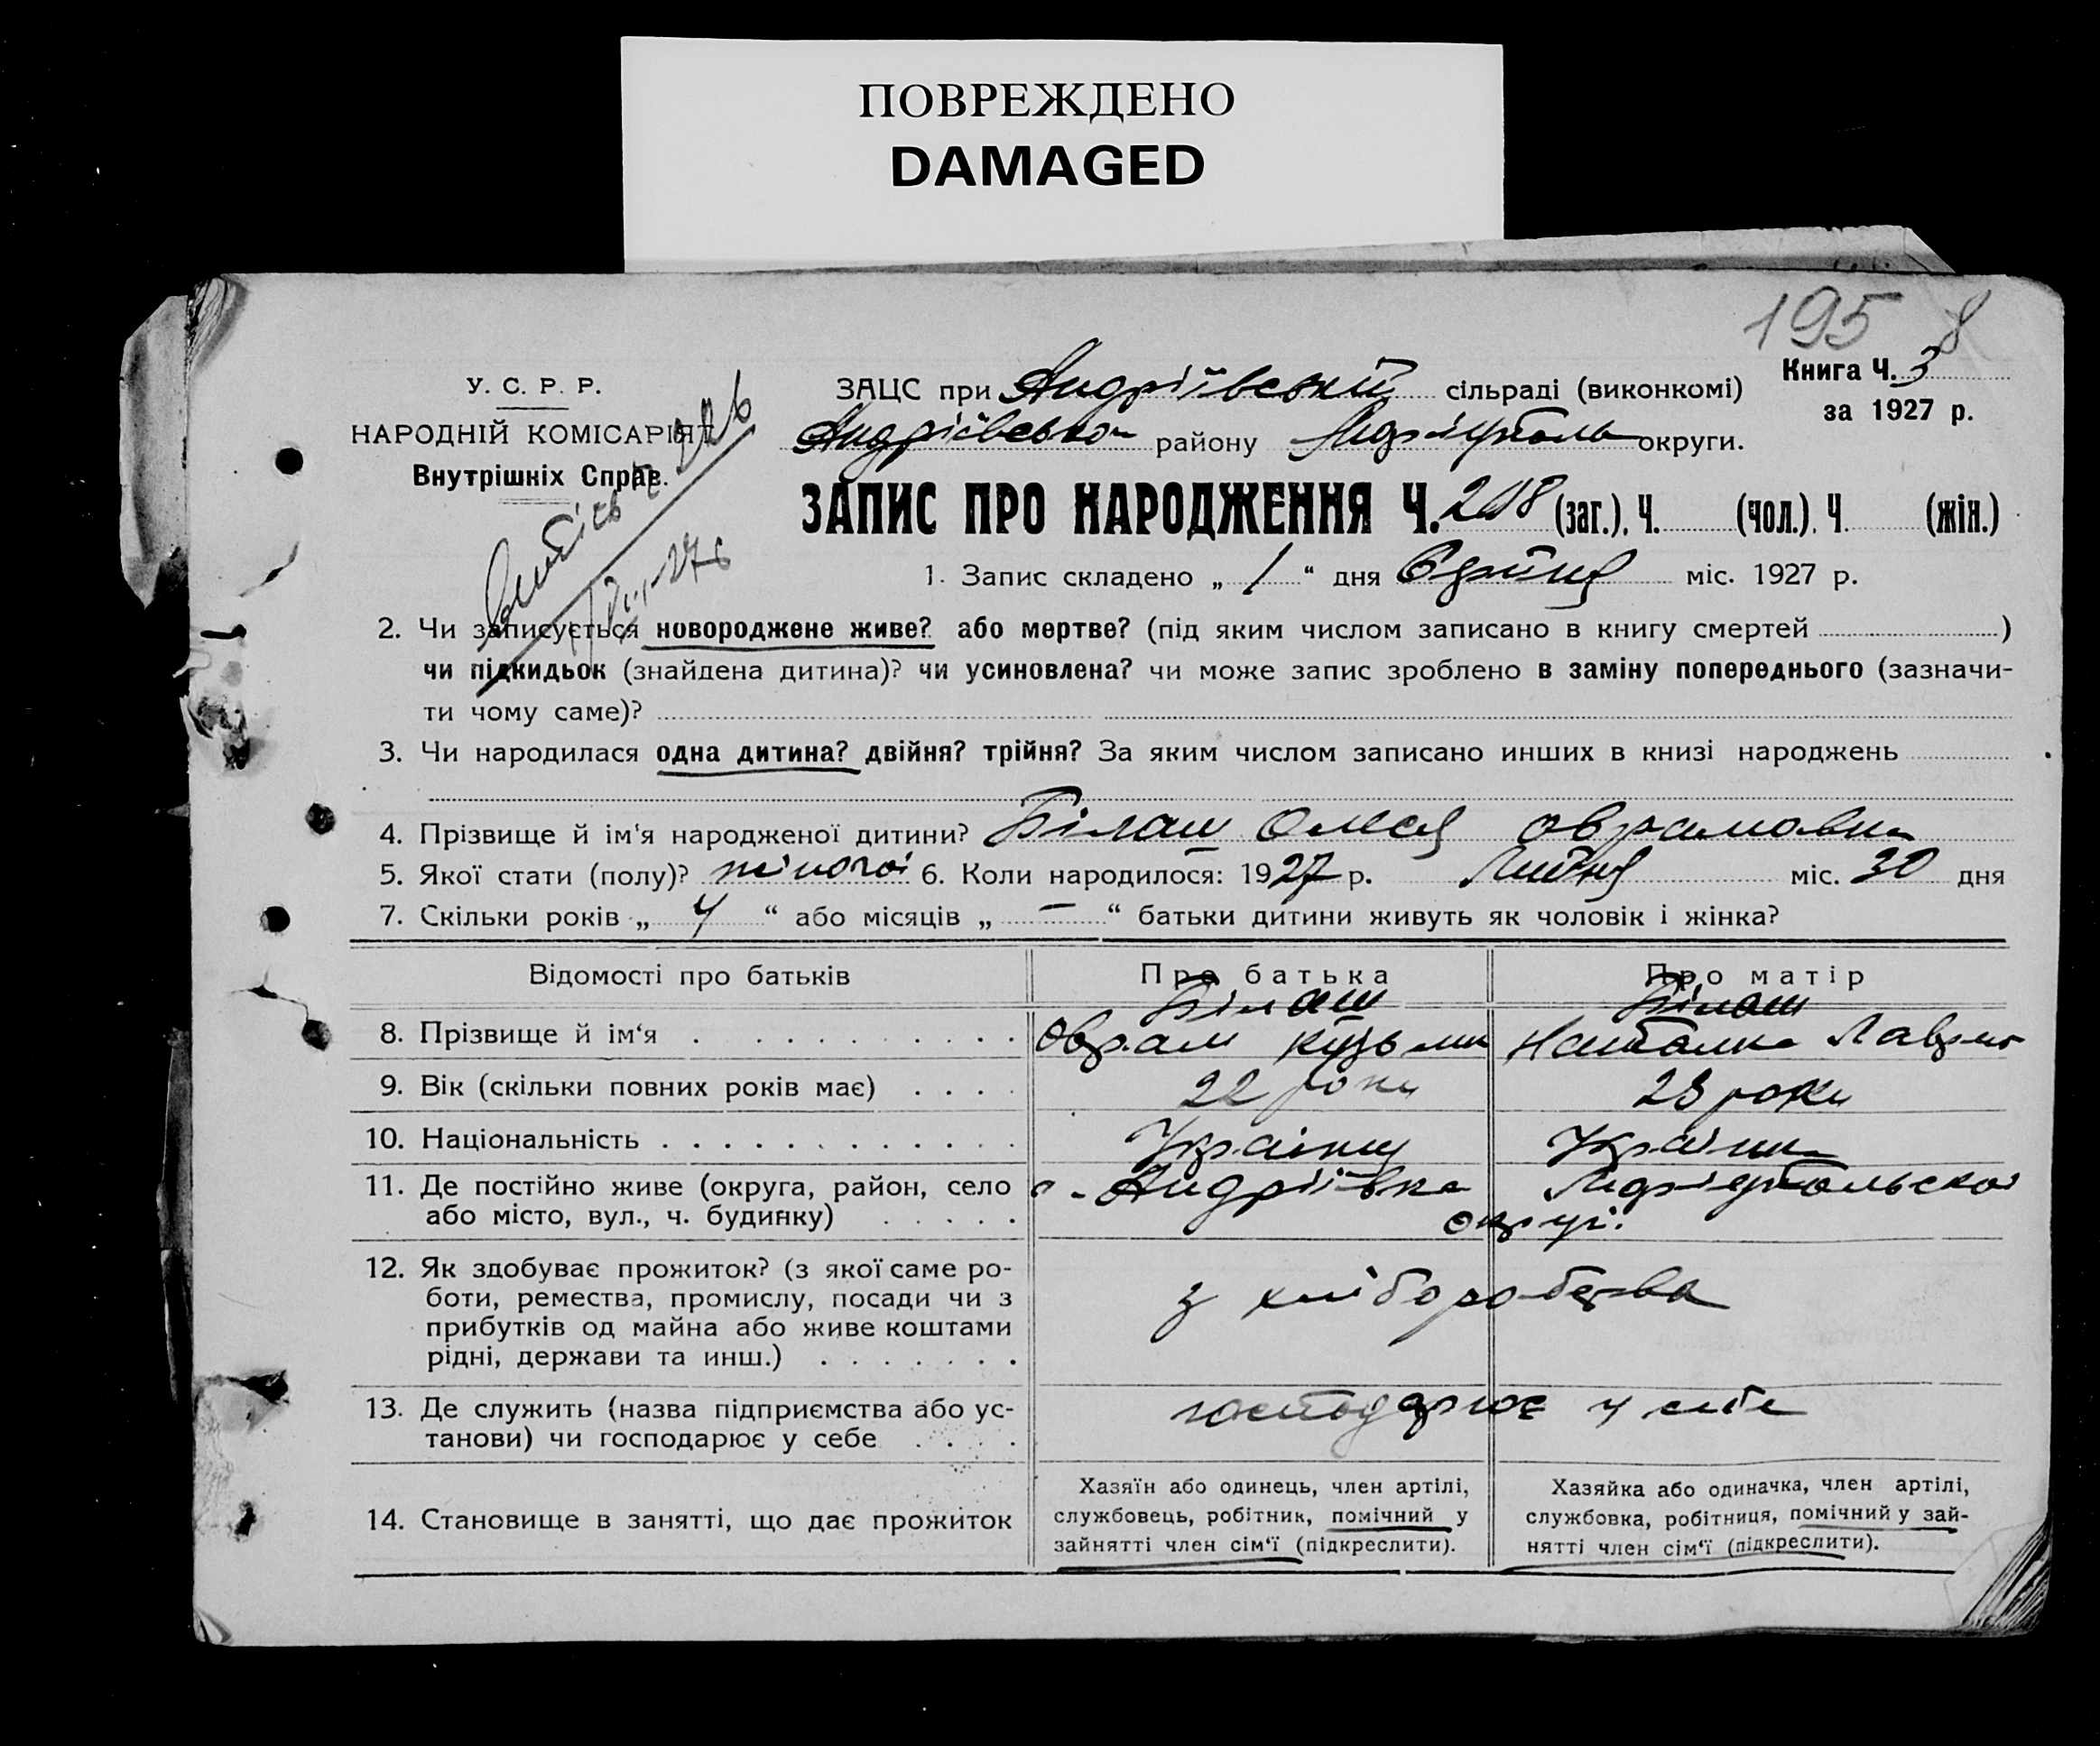 ПОВРЕЖДЕНО
DAMAGED
195 8
Книга Ч. 3
за 1927 р.
У. С. Р. Р.
НАРОДНІЙ КОМІСАРІЯТ
Внутрішніх Справ.
ЗАЦС при Андріївській сільраді (виконкомі)
Андріївсько району округи.
ЗАПИС ПРО НАРОДЖЕННЯ Ч. (заг.), Ч. (чол.), Ч. (жін.)
1. Запис складено „ 1 “ дня Серпня міс. 1927 р.
2. Чи записується новороджене живе? або мертве? (під яким числом записано в книгу смертей )
чи підкидьок (знайдена дитина)? чи усиновлена? чи може запис зроблено в заміну попереднього (зазначи-
ти чому саме)?
3. Чи народилася одна дитина? двійня? трійня? За яким числом записано инших в книзі народжень
4. Прізвище й ім'я народженої дитини? Білаш Олеся Оврамовна
5. Якої стати (полу)? жіночої 6. Коли народилося: 1927 р. Липня міс. 30 дня
7. Скільки років „ 4 “ або місяців „ — “ батьки дитини живуть як чоловік і жінка?
Відомості про батьків Про батька Про матір
Білаш Білаш
8. Прізвище й ім'я Оврам Кузьми Наталка Лаврен
9. Вік (скільки повних років має) 22 роки 23 роки
10. Національність Українц Українк
11. Де постійно живе (округа, район, село с. Андріївка
або місто, вул., ч. будинку) округі.
12. Як здобуває прожиток? (з якої саме ро-
боти, ремества, промислу, посади чи з з хліборобства
прибутків од майна або живе коштами
рідні, держави та инш.)
13. Де служить (назва підприємства або ус- господарює у себе
танови) чи господарює у себе
14. Становище в занятті, що дає прожиток
Хазяїн або одинець, член артілі,
службовець, робітник, помічний у
зайнятті член сім'ї (підкреслити).
Хазяйка або одиначка, член артілі,
службовка, робітниця, помічний у зай-
нятті член сім'ї (підкреслити).